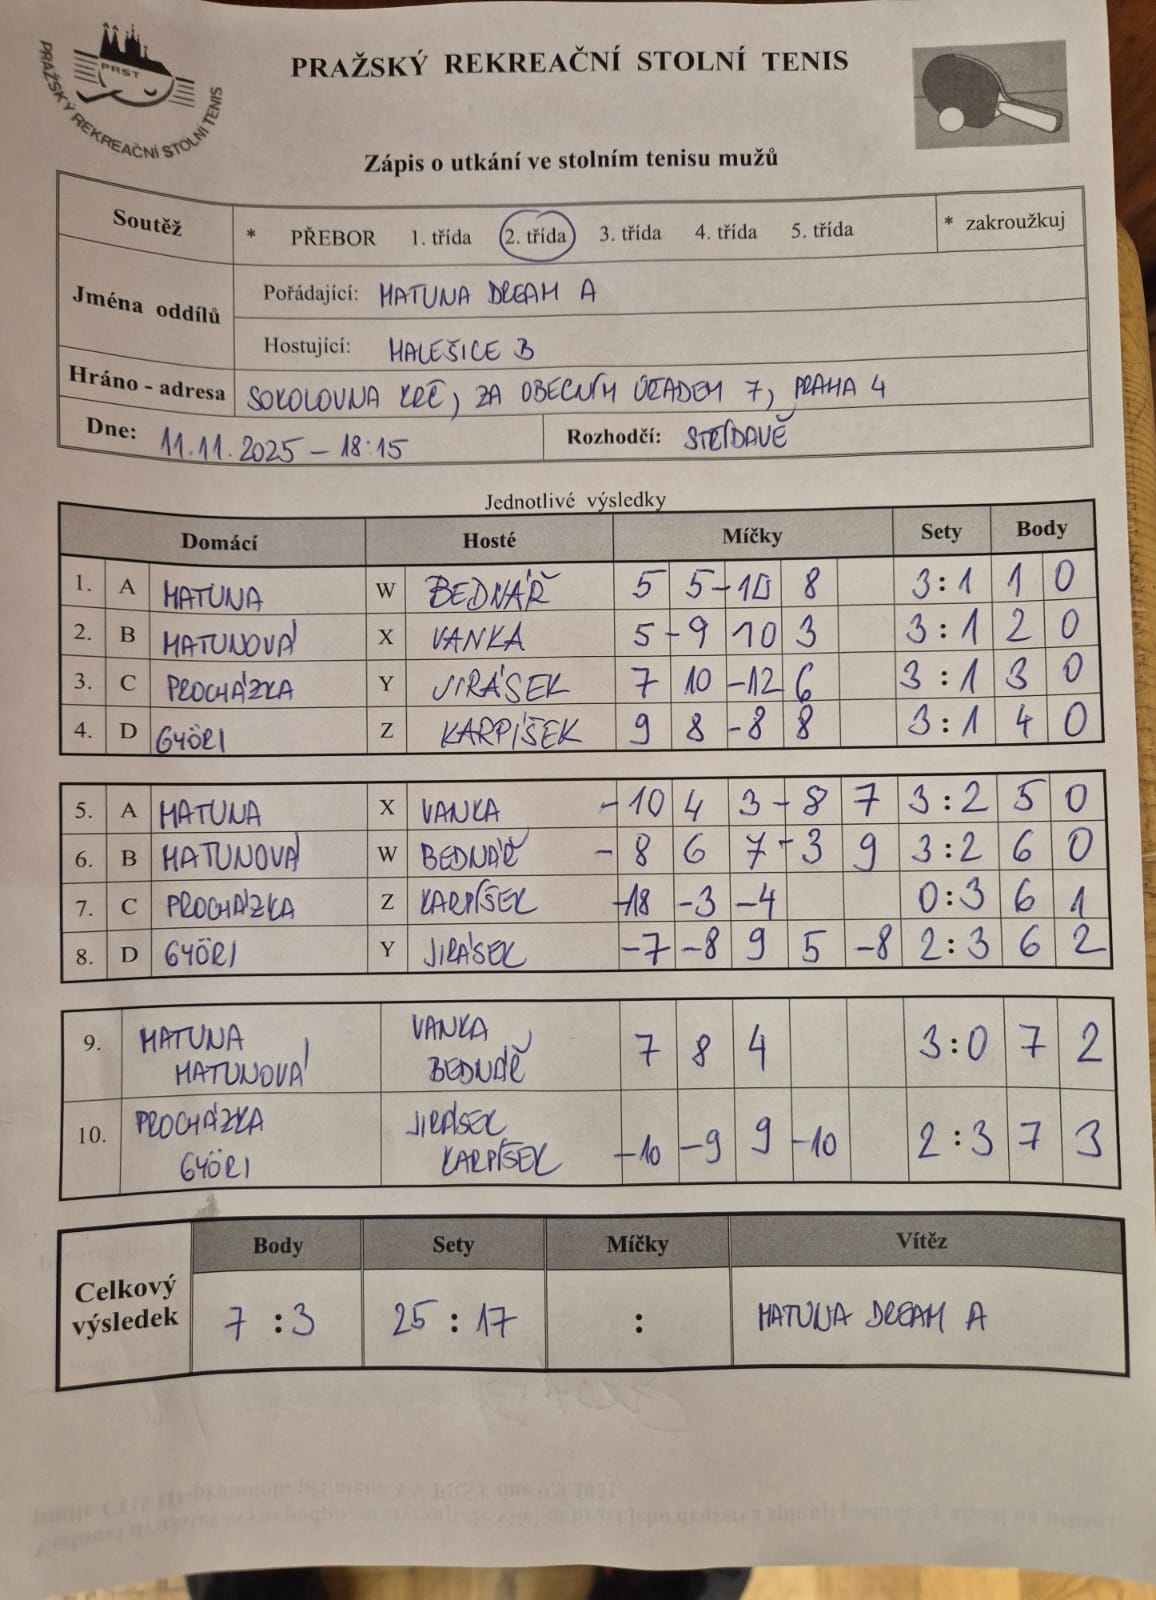 PRAŽSKÝ REKREAČNÍ STOLNÍ TENIS
PRST
PRAŽSKÝ REKREAČNÍ STOLNÍ TENIS
Zápis o utkání ve stolním tenisu mužů
Soutěž * PŘEBOR 1. třída 2. třída 3. třída 4. třída 5. třída * zakroužkuj
Jména oddílů
Pořádající: MATUNA DREAM A
Hostující: MALEŠICE B
Hráno - adresa SOKOLOVNA KRČ, ZA OBECNÍM ÚŘADEM 7, PRAHA 4
Dne: 11.11.2025 – 18:15 Rozhodčí: STŘÍDAVĚ
Jednotlivé výsledky
Domácí Hosté Míčky Sety Body
1. A MATUNA W BEDNÁŘ 5 5 -10 8 3:1 1 0
2. B MATUNOVÁ X VANKA 5 -9 10 3 3:1 2 0
3. C PROCHÁZKA Y JIRÁSEK 7 10 -12 6 3:1 3 0
4. D GYÖRI Z KARPÍŠEK 9 8 -8 8 3:1 4 0
5. A MATUNA X VANKA -10 4 3 -8 7 3:2 5 0
6. B MATUNOVÁ W BEDNÁŘ -8 6 7 -3 9 3:2 6 0
7. C PROCHÁZKA Z KARPÍŠEK -18 -3 -4 0:3 6 1
8. D GYÖRI Y JIRÁSEK -7 -8 9 5 -8 2:3 6 2
9. MATUNA VANKA 7 8 4 3:0 7 2
MATUNOVÁ BEDNÁŘ
10. PROCHÁZKA JIRÁSEK -10 -9 9 -10 2:3 7 3
GYÖRI KARPÍŠEK
Body Sety Míčky Vítěz
Celkový výsledek 7 : 3 25 : 17 : MATUNA DREAM A